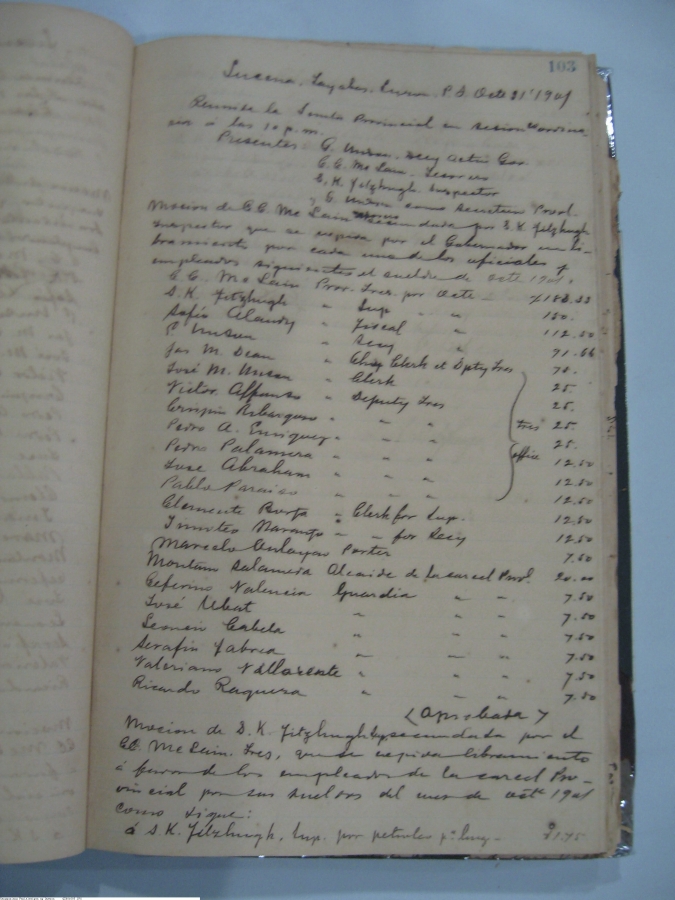 103
Lucena, Tayabas, Luzon, P. I. Oct. 31st 1901
Reunese la Junta Provincial en sesion
ria á las 10 p.m.
Presentes: G. Unson, Secy Actin Gov.
C. E. McLain, Tesorero
S. K. Fitzhugh Inspector
y G. Unson como Secretario Provl.
Mocion de C. E. McLain secundada por S. K. Fitzhugh
Inspector que se expida por el Gobernador un li-
bramiento para cada uno de los oficiales y
empleados siguientes el sueldo de octe 1901.
C. E. McLain Prov. Tres. por Octe - 183.33
S. K. Fitzhugh " Sup " " 150.
Sofio Alandy " Fiscal " 112.50
G Unson " Secy " 91.66
Jas M. Dean " Chief Clerk et Dpty Tres 70.
José M. Unson " Clerk 25.
Victor Alfonso " Deputy Tres 25.
Crispin " " " Tres 25.
Pedro A. Enriquez " " " office 25.
Pedro Palamera " " " 12.50
Jose Abraham " " " 12.50
Pablo Paraiso " " " 12.50
Clemente " Clerk for Sup. 12.50
Timoteo Naranjo " " for Secy 12.50
Marcelo Porter 7.50
Salamera Alcaide de la carcel Provl. 20.00
Ceferino Valencia Guardia " " 7.50
José Ubat " " " 7.50
Cabela " " " 7.50
Serafin Fabrea " " " 7.50
Valeriano Villarente " " " 7.50
Ricardo Raquera " " " 7.50
(Aprobada)
Mocion de S. K. Fitzhugh y secundada por el
C. E. McLain, Tres, que se expida libramiento
á favor de los empleados de la carcel Pro-
vincial por sus sueldos del mes de octe 1901
como sigue:
á S. K. Fitzhugh, Sup. por petroleo pa 21.45